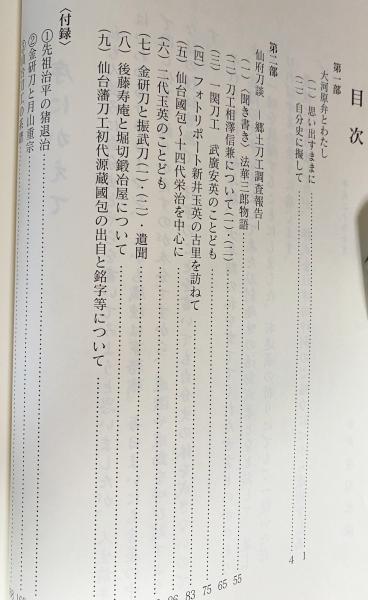 目次
第一部
大河原弁とわたし
(一) 思い出すままに……1
(二) 自分史に擬して……4
第二部
仙府刀談 ―郷土刀工調査報告―
(一)〈聞き書き〉法華三郎物語……55
(二) 刀工相澤信兼について(一)・(二)……65
(三) 関刀工 武廣安英のことども……75
(四) フォトリポート新井玉英の古里を訪ねて……83
(五) 仙台國包~十四代栄治を中心に……96
(六) 二代玉英のことども
(七) 金研刀と振武刀(一)・(二)・遺聞
(八) 後藤寿庵と堀切鍛冶屋について
(九) 仙台藩刀工初代源蔵國包の出自と銘字等について
〈付録〉
①先祖治平の猪退治
②金研刀と月山重宗